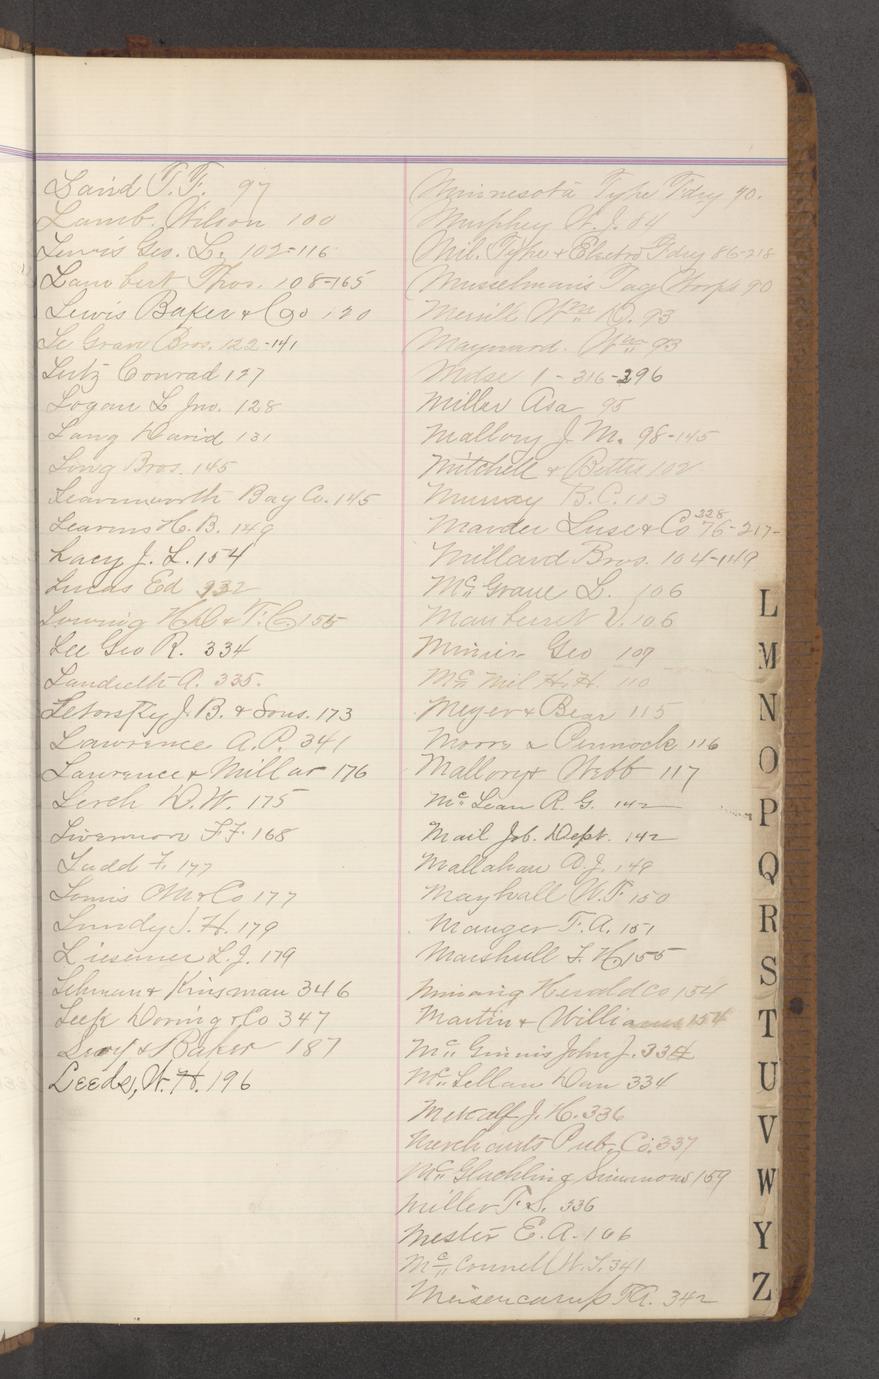 Laird T. F. 97
Lamb. Wilson 100
Lewis Geo. L. 102-116
Lambert Thos. 108-165
Lewis Baker & Co 120
Le Gran Bros. 122-141
Lutz Conrad 127
Logan L Jno. 128
Lang David 131
Long Bros. 145
Leavenworth Bag Co. 145
Learns H. B. 149
Lacy J. L. 154
Lucas Ed 332
Lowing H. D & T. C 155
Lee Geo R. 334
Landreth A. 335.
J. B. & Sons. 173
Lawrence A. P. 341
Lawrence & Millar 176
Lerch D. W. 175
Livermore F. F. 168
Ladd F. 177
Lomis & Co 177
Lundy J. H. 179
Liesemer L. J. 179
Lehman & Kinsman 346
Leek Doring & Co 347
Levy & Baker 187
Leeds, W. H. 196
Minnesota Type Fdry 90.
Murphey W. J. 84
Mil. Type & Electro Fdry 86-218
Musselman's Tag Works 90
Merrill Wm D. 93
Maynard. Wm 93
Mdse 1-316-396
Millar Asa 95
Mallory J. M. 98-145
Mitchell & Bettis 102
Murray B. C. 103
Marder Luse & Co 76-217-228
Millard Bros. 104-149
Mc Grane L. 106
V. 106
Minier Geo 109
Mc Mil H. H. 110
Meyer & Bear 115
Moore & Pennock 116
Mallory & Webb 117
Mc Lean R. G. 142
Mail Job. Dept. 142
Mallahan R. J. 149
Mayhall W. F. 150
Manger F. A. 151
Marshall F. H 155
Mining Herald Co 154
Martin & Williams 154
Mc Ginnis John J. 334
Mc Lellan Dan 334
Metcalf J. H. 336
Merchants Pub. Co. 337
Mc Glachlin & Simmons 159
Miller T. S. 336
Mester E. A. 166
Mc Connell W. S. 341
Meisencamp F. A. 342
L
M
N
O
P
Q
R
S
T
U
V
W
Y
Z